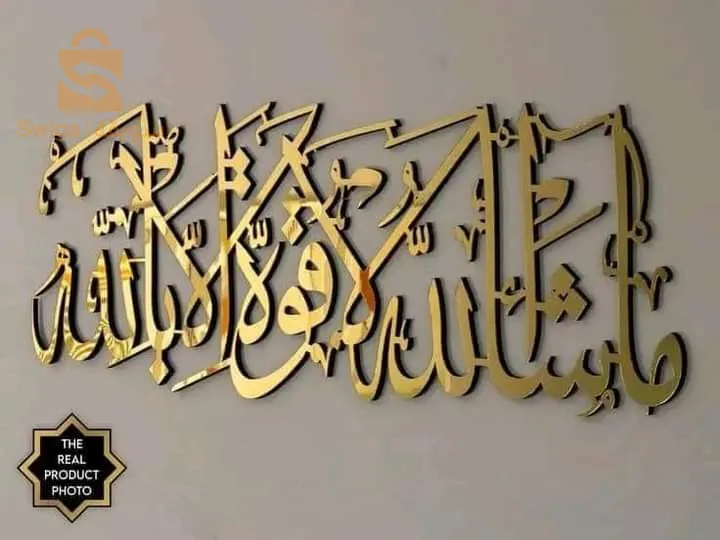 ما شاء الله لا قوة إلا بالله
THE
REAL
PRODUCT
PHOTO